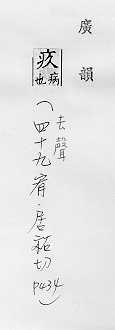 廣韻
疚病也
(去聲
四十九宥·居祐切 p434)